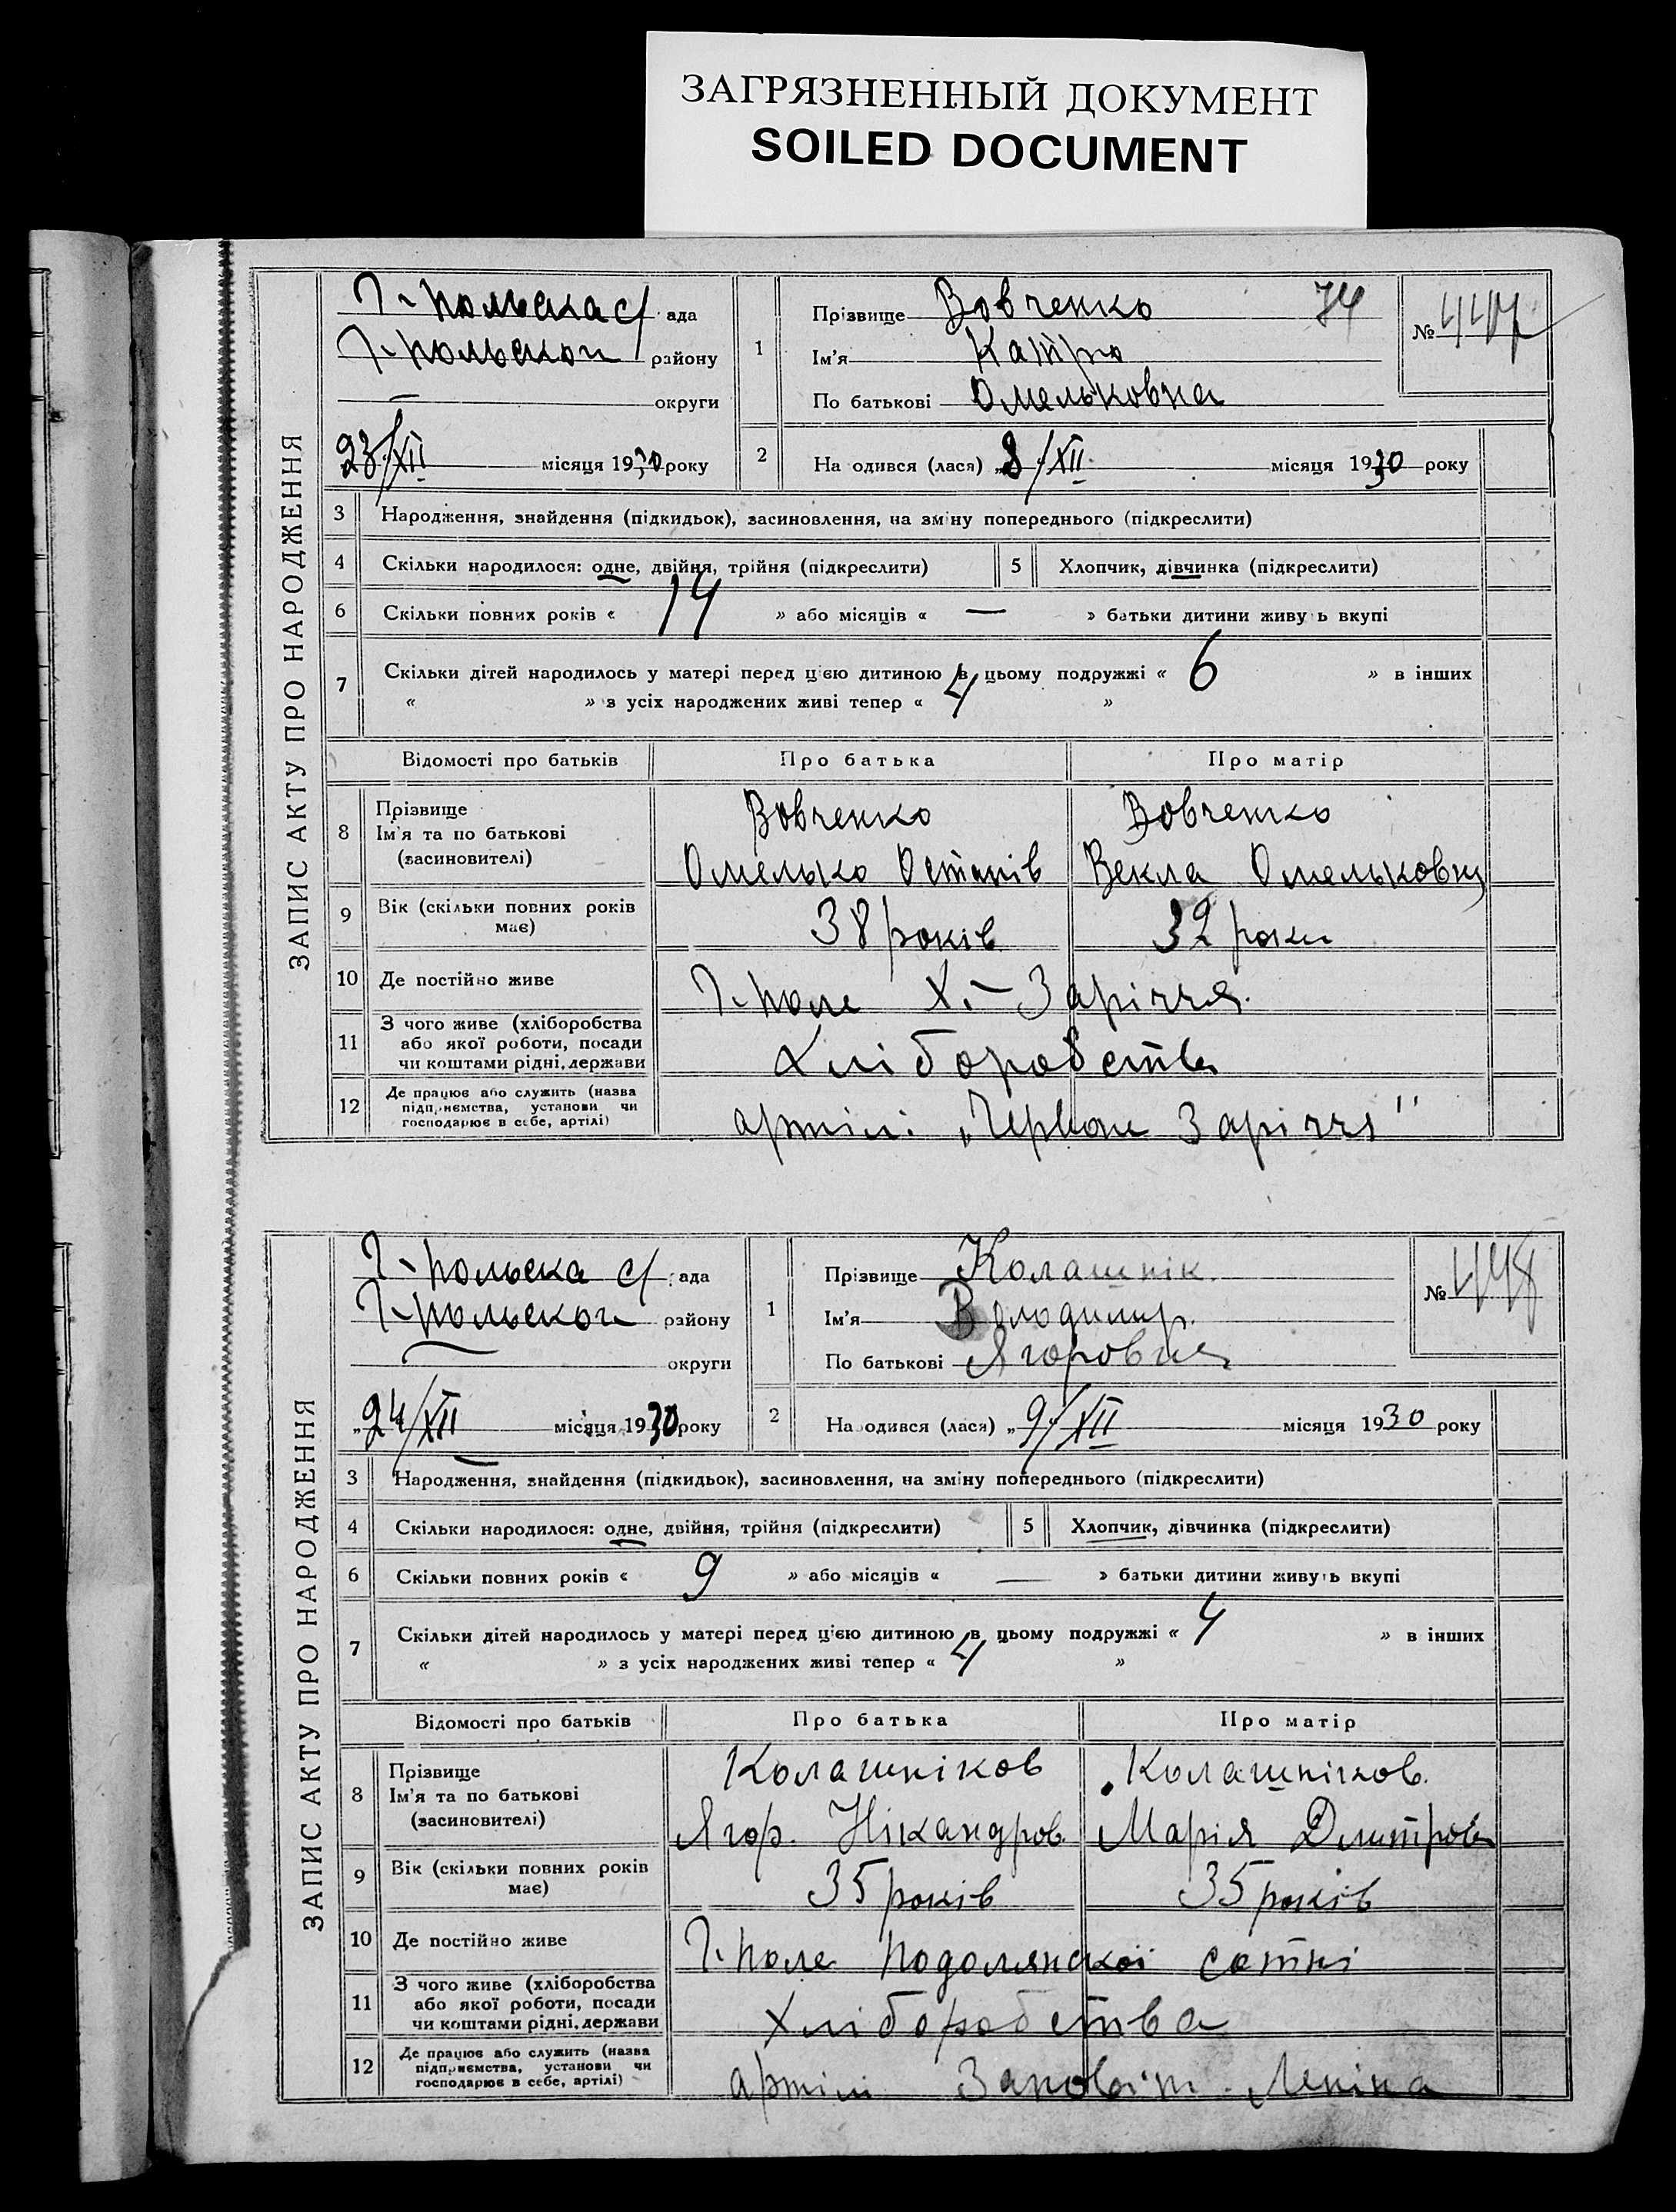 ЗАГРЯЗНЕННЫЙ ДОКУМЕНТ
SOILED DOCUMENT
ЗАПИС АКТУ ПРО НАРОДЖЕННЯ
Г-польска с/ ада
Г-польской району
— округи
23/XII місяця 1930 року
1 Прізвище Вовченко 74
Ім'я Катря
По батькові Омельковна
№ 447
2 На одився (лася) „8/XII місяця 1930 року
3 Народження, знайдення (підкидьок), засиновлення, на зміну попереднього (підкреслити)
4 Скільки народилося: одне, двійня, трійня (підкреслити) 5 Хлопчик, дівчинка (підкреслити)
6 Скільки повних років « 14 » або місяців « — » батьки дитини живу ь вкупі
7 Скільки дітей народилось у матері перед цією дитиною в цьому подружжі « 6 » в інших
« » з усіх народжених живі тепер « 4 »
Відомості про батьків Про батька Про матір
8 Прізвище Вовченко Вовченко
Ім'я та по батькові
(засиновителі) Омелько Остапів Векла Омельковна
9 Вік (скільки повних років має) 38 років 32 роки
10 Де постійно живе Г-поле Х.– Заріччя.
11 З чого живе (хліборобства
або якої роботи, посади
чи коштами рідні, держави Хліборобства
12 Де працює або служить (назва
підприємства, установи чи
господарює в себе, артілі) артілі „Червоне Заріччя"
ЗАПИС АКТУ ПРО НАРОДЖЕННЯ
Г-польска с/ ада
Г-польской району
— округи
„24/XII місяця 1930 року
1 Прізвище Колашнік.
Ім'я Володимир.
По батькові Ягоровна
№ 448
2 На одився (лася) „9/XII місяця 1930 року
3 Народження, знайдення (підкидьок), засиновлення, на зміну попереднього (підкреслити)
4 Скільки народилося: одне, двійня, трійня (підкреслити) 5 Хлопчик, дівчинка (підкреслити)
6 Скільки повних років « 9 » або місяців « — » батьки дитини живуть вкупі
7 Скільки дітей народилось у матері перед цією дитиною в цьому подружжі « 4 » в інших
« » з усіх народжених живі тепер « 4 »
Відомості про батьків Про батька Про матір
8 Прізвище Колашніков Колашніков.
Ім'я та по батькові
(засиновителі) Ягор. Нікандров. Марія Дмитров
9 Вік (скільки повних років має) 35 років 35 років
10 Де постійно живе Г-поле Подолянскої сотні
11 З чого живе (хліборобства
або якої роботи, посади
чи коштами рідні, держави Хліборобства
12 Де працює або служить (назва
підприємства, установи чи
господарює в себе, артілі) артілі Заповіт Леніна